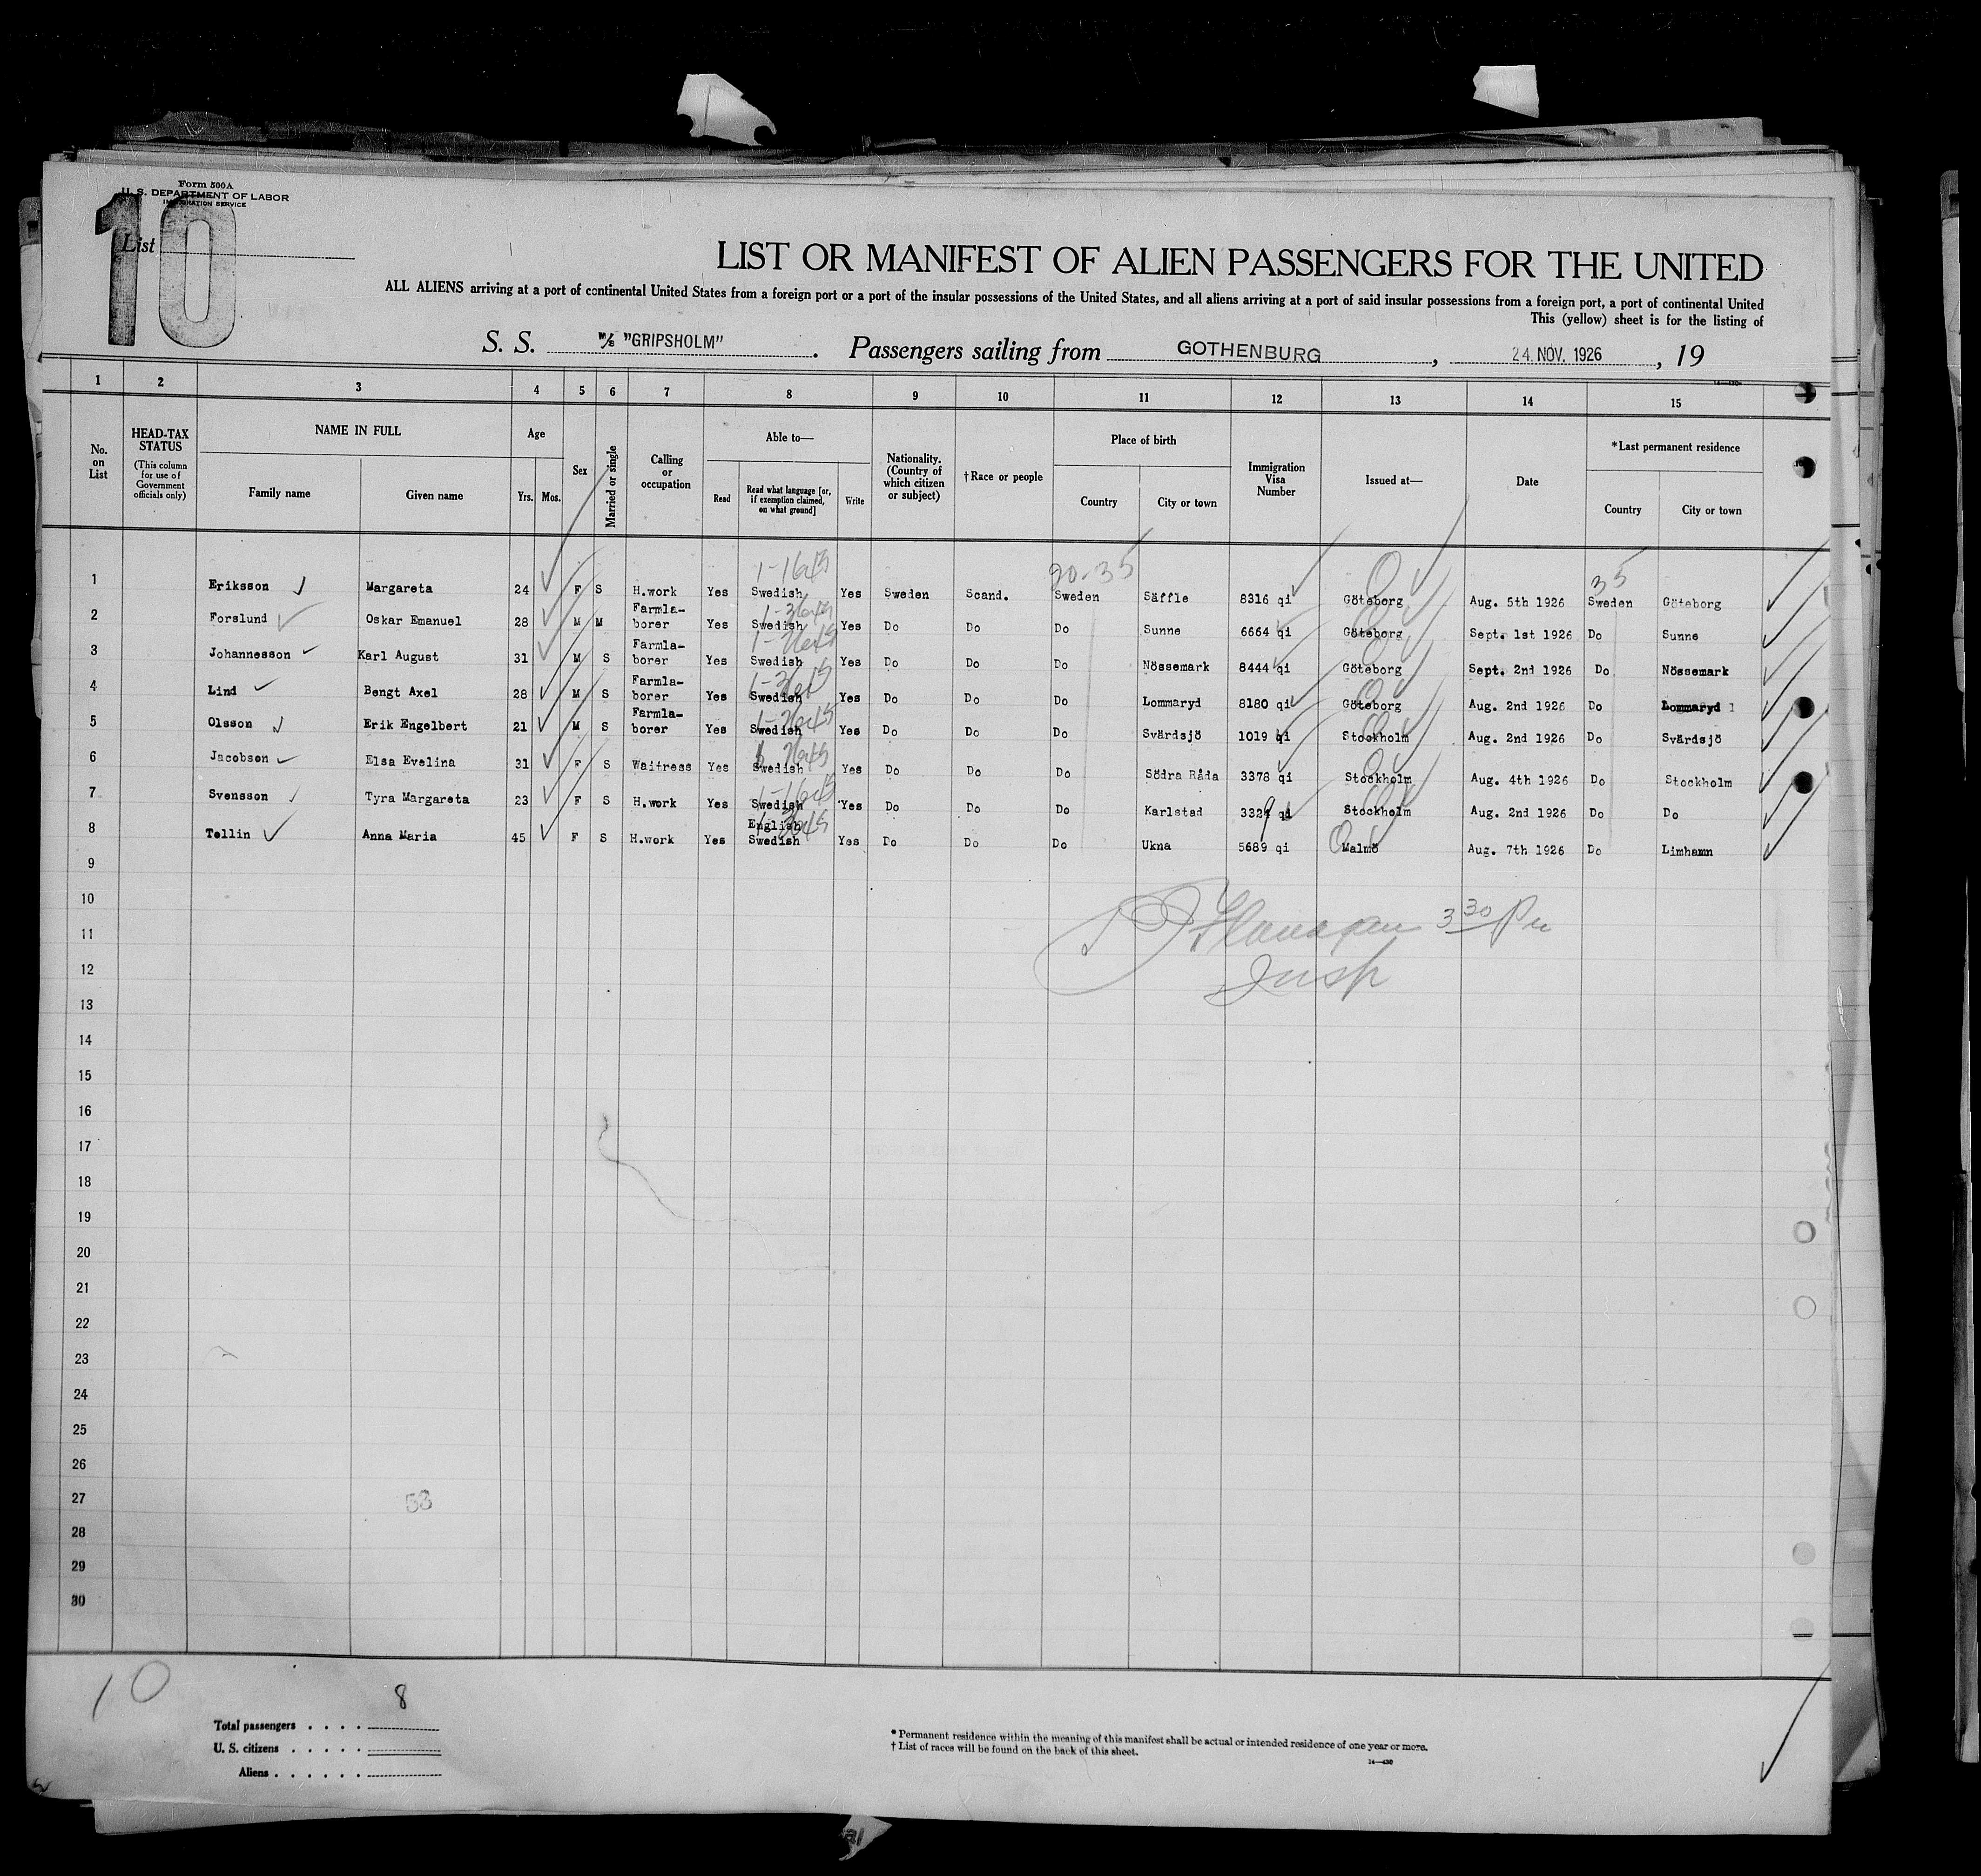 Form 500A
U. S. DEPARTMENT OF LABOR
IMMIGRATION SERVICE
10
List
LIST OR MANIFEST OF ALIEN PASSENGERS FOR THE UNITED
ALL ALIENS arriving at a port of continental United States from a foreign port or a port of the insular possessions of the United States, and all aliens arriving at a port of said insular possessions from a foreign port, a port of continental United
This (yellow) sheet is for the listing of
S. S. M/S "GRIPSHOLM" . Passengers sailing from GOTHENBURG , 24. NOV. 1926 , 19
1 2 3 4 5 6 7 8 9 10 11 12 13 14 15
No. on List
HEAD-TAX STATUS
(This column for use of Government officials only)
NAME IN FULL
Family name
Given name
Age
Yrs.
Mos.
Sex
Married or single
Calling or occupation
Able to—
Read
Read what language [or, if exemption claimed, on what ground]
Write
Nationality. (Country of which citizen or subject)
†Race or people
Place of birth
Country
City or town
Immigration Visa Number
Issued at—
Date
*Last permanent residence
Country
City or town
20-35
35
1 Eriksson Margareta 24 F S H.work Yes Swedish Yes Sweden Scand. Sweden Säffle 8316 qi Göteborg Aug. 5th 1926 Sweden Göteborg
2 Forslund Oskar Emanuel 28 M M Farmla-borer Yes Swedish Yes Do Do Do Sunne 6664 qi Göteborg Sept. 1st 1926 Do Sunne
3 Johannesson Karl August 31 M S Farmla-borer Yes Swedish Yes Do Do Do Nössemark 8444 qi Göteborg Sept. 2nd 1926 Do Nössemark
4 Lind Bengt Axel 28 M S Farmla-borer Yes Swedish Yes Do Do Do Lommaryd 8180 qi Göteborg Aug. 2nd 1926 Do Lommaryd
5 Olsson Erik Engelbert 21 M S Farmla-borer Yes Swedish Yes Do Do Do Svärdsjö 1019 qi Stockholm Aug. 2nd 1926 Do Svärdsjö
6 Jacobson Elsa Evelina 31 F S Waitress Yes Swedish Yes Do Do Do Södra Råda 3378 qi Stockholm Aug. 4th 1926 Do Stockholm
7 Svensson Tyra Margareta 23 F S H.work Yes Swedish Yes Do Do Do Karlstad 3329 qi Stockholm Aug. 2nd 1926 Do Do
8 Tellin Anna Maria 45 F S H.work Yes English Swedish Yes Do Do Do Ukna 5689 qi Malmö Aug. 7th 1926 Do Limhamn
9
10
Flanagan 3 30 Pm
11
12
Insp
13
14
15
16
17
18
19
20
21
22
23
24
25
26
27
53
28
29
30
10
8
Total passengers . . . .
U. S. citizens . . . . .
Aliens . . . . . .
* Permanent residence within the meaning of this manifest shall be actual or intended residence of one year or more.
† List of races will be found on the back of this sheet.
14—430